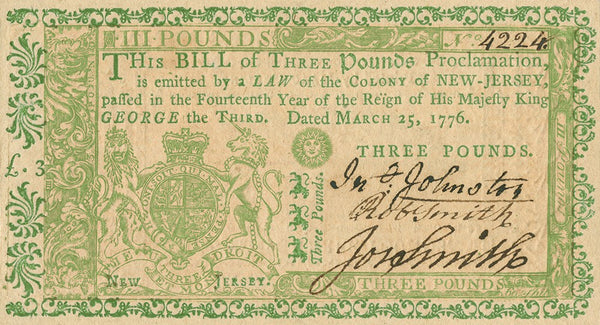 III POUNDS No. 4224.
THIS BILL of THREE Pounds Proclamation,
is emitted by a LAW of the COLONY of NEW-JERSEY,
passed in the Fourteenth Year of the Reign of His Majesty King
GEORGE the THIRD. Dated MARCH 25, 1776.
£. 3
THREE POUNDS.
Three Pounds.
Jno. Johnston
Rob Smith
Jos Smith
DROIT
NEW JERSEY.
THREE POUNDS